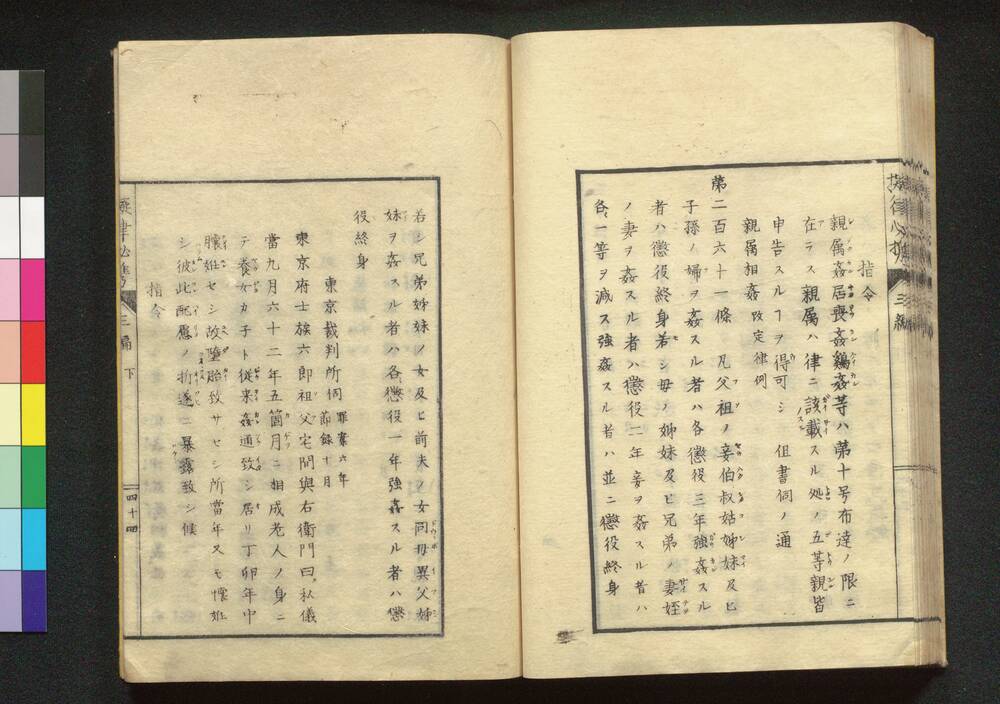 指令
親属姦居喪姦鷄姦等ハ第十号布達ノ限ニ
在ラス親属ハ律ニ該載スル処ノ五等親皆
申告スルヿヲ得可シ 但書伺ノ通
親属相姦 改定律例
第二百六十一條 凡父祖ノ妾伯叔姑姊妹及ヒ
子孫ノ婦ヲ姦スル者ハ各懲役三年強姦スル
者ハ懲役終身若シ母ノ姊妹及ヒ兄弟ノ妻姪
ノ妻ヲ姦スル者ハ懲役二年妾ヲ姦スル者ハ
各一等ヲ減ス強姦スル者ハ並ニ懲役終身
三編
若シ兄弟姊妹ノ女及ヒ前夫ノ女同母異父姊
妹ヲ姦スル者ハ各懲役一年強姦スル者ハ懲
役終身
東京裁判所伺 罪案六年
節録十月
東京府士族六郎祖父宅間與右衛門曰私儀
當九月六十二年五箇月ニ相成老人ノ身ニ
テ養女カ子ト従来姦通致シ居リ丁卯年中
懐姙セシ故墮胎致サセシ所當年又モ懐姙
シ彼此配慮ノ折遂ニ暴露致シ候
指令
三編 下
四十四